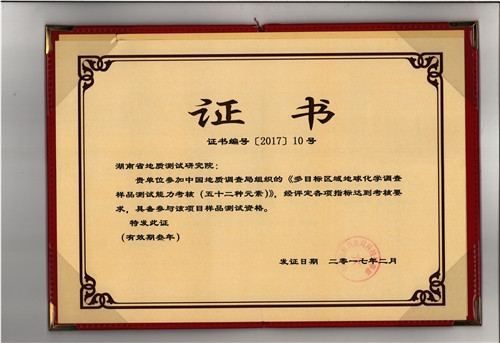 证书
证书编号〔2017〕10号
湖南省地质测试研究院：
贵单位参加中国地质调查局组织的《多目标区域地球化学调查
样品测试能力考核（五十二种元素）》，经评定各项指标达到考核要
求，具备参与该项目样品测试资格。
特发此证
（有效期叁年）
发证日期 二零一七年二月